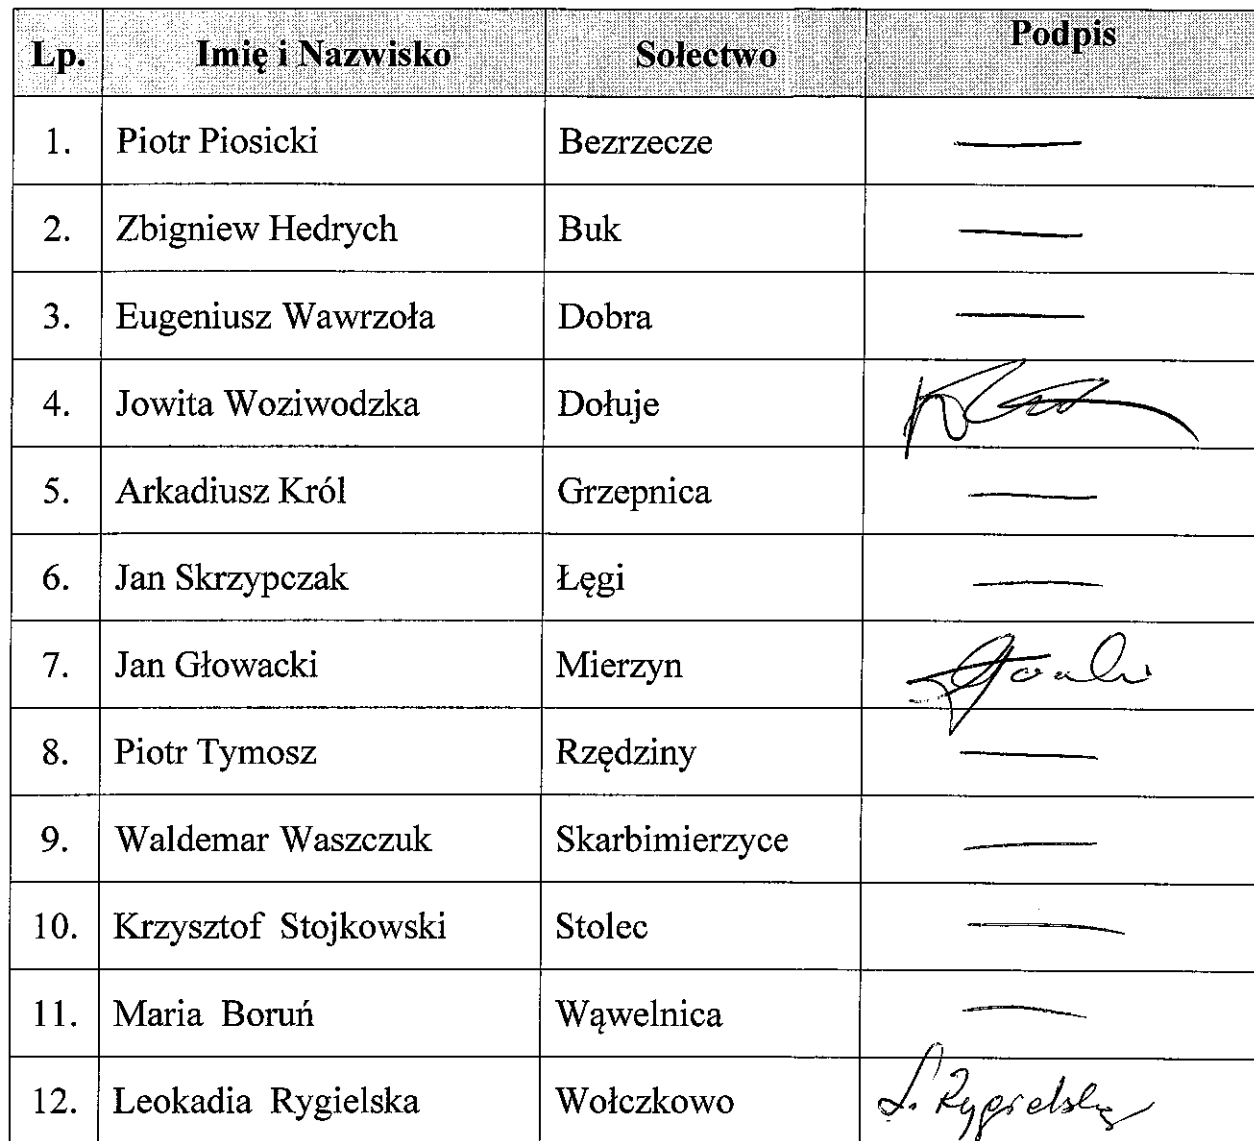 Lp. Imię i Nazwisko Sołectwo Podpis
1. Piotr Piosicki Bezrzecze —
2. Zbigniew Hedrych Buk —
3. Eugeniusz Wawrzoła Dobra —
4. Jowita Woziwodzka Dołuje
5. Arkadiusz Król Grzepnica —
6. Jan Skrzypczak Łęgi —
7. Jan Głowacki Mierzyn
8. Piotr Tymosz Rzędziny —
9. Waldemar Waszczuk Skarbimierzyce —
10. Krzysztof Stojkowski Stolec —
11. Maria Boruń Wąwelnica —
12. Leokadia Rygielska Wołczkowo L. Rygielska